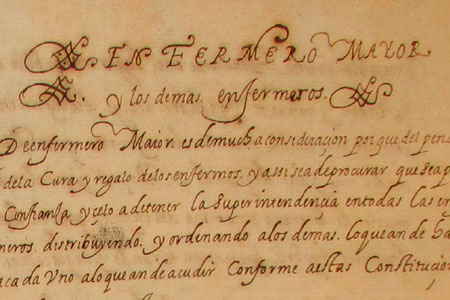 ENFERMERO MAYOR
y los demas enfermeros.
De enfermero Maior. es demucha consideraçion por que del pen
dela Cura y regalo delos enfermos, y assi sea de procurar que sea p
Confianza y celo a detener la superintendençia en todas las en
meros. distribuyendo. y ordenando alos demas. loque an de ha
a cada Uno alo que an de acudir Conforme a estas Constitucio